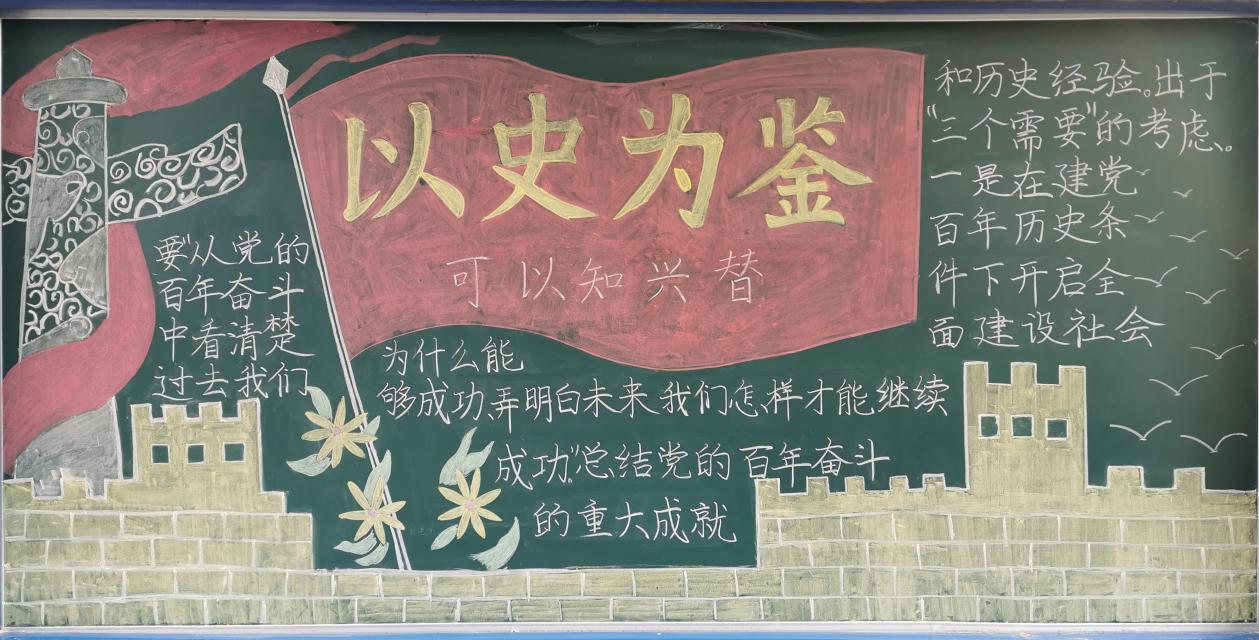 以史为鉴
可以知兴替
要"从党的
百年奋斗
中看清楚
过去我们
为什么能
够成功、弄明白未来我们怎样才能继续
成功"。总结党的百年奋斗
的重大成就
和历史经验。出于
"三个需要"的考虑。
一是在建党
百年历史条
件下开启全
面建设社会